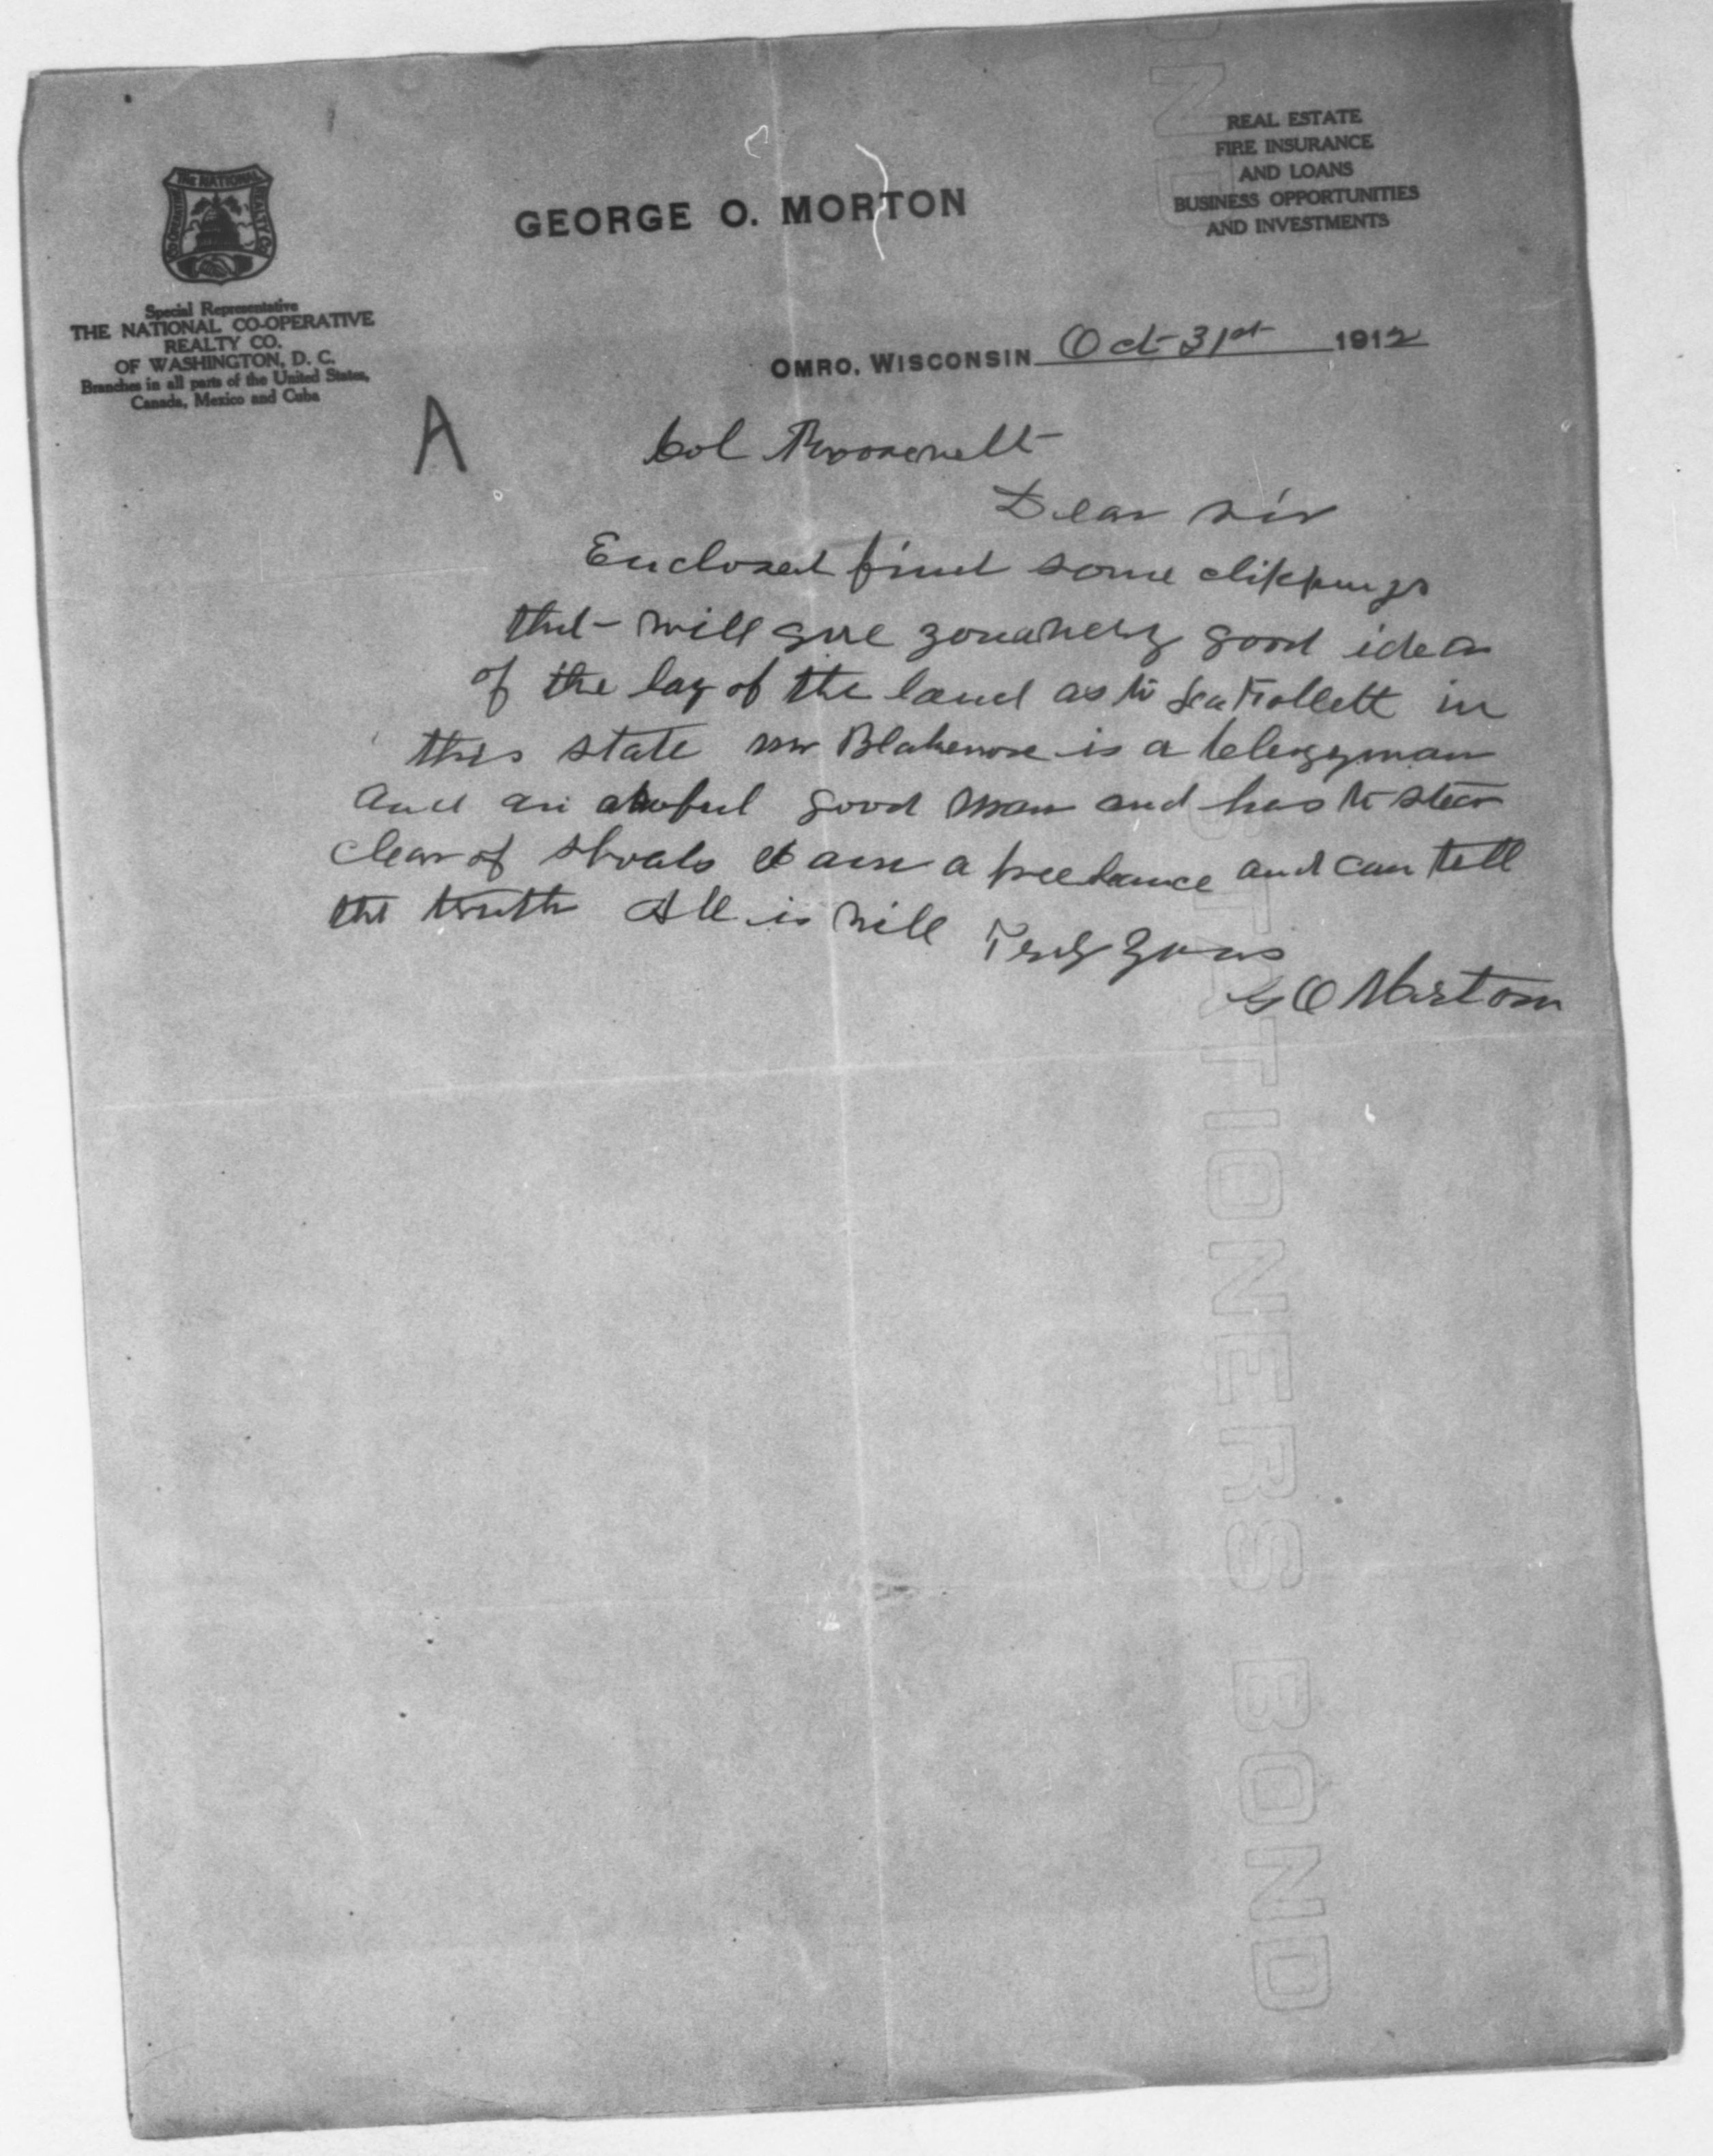 THE NATIONAL
CO-OPERATIVE
REALTY CO.
Special Representative
THE NATIONAL CO-OPERATIVE
REALTY CO.
OF WASHINGTON, D. C.
Branches in all parts of the United States,
Canada, Mexico and Cuba
GEORGE O. MORTON
REAL ESTATE
FIRE INSURANCE
AND LOANS
BUSINESS OPPORTUNITIES
AND INVESTMENTS
OMRO, WISCONSIN Oct 31st 1912
A
Col Roosevelt
Dear Sir
Enclosed find some clippings
that will give you a very good idea
of the lay of the land as to La Follett in
this state Mr is a clergyman
and an awful good man and has to stear
clear of shoals I am a freelance and can tell
the truth All is well Truly yours
G O Morton
STATIONERS BOND